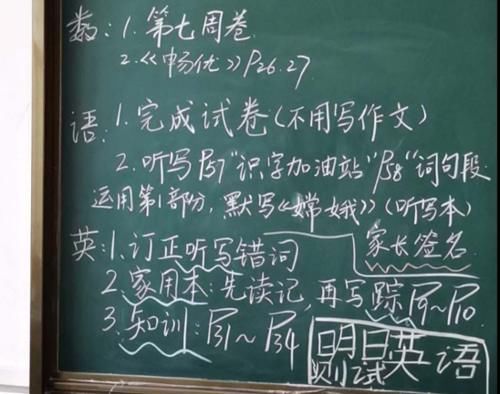 数：1. 第七周卷
2.《畅优》P26.27
语：1. 完成试卷(不用写作文)
2. 听写P57"识字加油站"P58"词句段
运用第1部分，默写《嫦娥》(听写本)
英：1. 订正听写错词 家长签名
2. 家用本：先读记，再写踪P9~P10
3. 知训：P31~P34
明日英语
测试